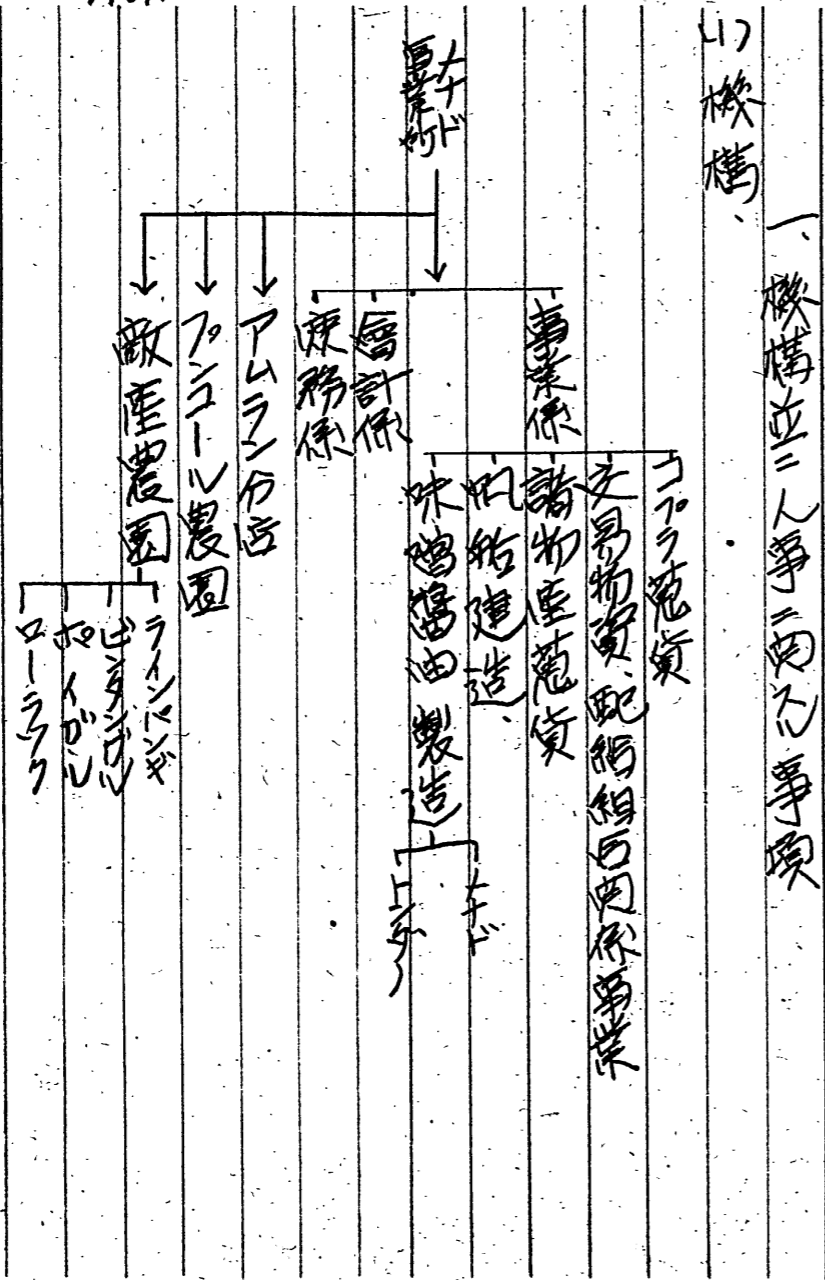 一、機構並ニ人事ニ関スル事項
(1) 機構、
メナド
事業所
事業係
コプラ蒐貨
交易物資、配給組合関係事業
諸物産蒐貨
帆船建造、
味噌醤油製造
メナド
トンダノ
會計係
庶務係
アムラン分店
プンコール農園
敵産農園
ラインパンギ
ビンタングル
ポイガル
ローラック